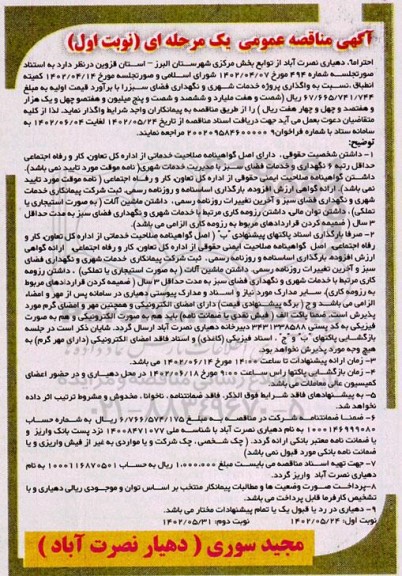 آگهی مناقصه عمومی یک مرحله ای (نوبت اول)
احتراماً، دهیاری نصرت آباد از توابع بخش مرکزی شهرستان البرز – استان قزوین درنظر دارد به استناد
صورتجلسه شماره ۴۹۴ مورخ ۱۴۰۲/۰۴/۰۷ شورای اسلامی و صورتجلسه مورخ ۱۴۰۲/۰۴/۱۴ کمیته
انطباق، نسبت به واگذاری پروژه خدمات شهری و نگهداری فضای سبزرا با برآورد قیمت اولیه به مبلغ
۶۷/۶۶۵/۷۴۱/۷۴۴ ریال (شصت و هفت میلیارد و ششصد و شصت و پنج میلیون و هفتصو چهل و یک هزار
و هفتصد و چهل و چهار هفت ریال) را از طریق مناقصه به پیمانکاران واجد شرایط واگذار نماید. لذا از کلیه
متقاضیان دعوت بعمل می آید جهت دریافت اسناد مناقصه از تاریخ ۱۴۰۲/۰۵/۲۴ لغایت ۱۴۰۲/۰۶/۰۴ به
سامانه ستاد با شماره فراخوان ۲۰۰۲۰۹۵۸۴۶۰۰۰۰۰۹ مراجعه نمایند.
توضیح:
۱- داشتن شخصیت حقوقی، دارای اصل گواهینامه صلاحیت خدماتی از اداره کل تعاون، کار و رفاه اجتماعی
حداقل رتبه ۶ نگهداری و خدمات فضای سبز یا مدیریت خدمات شهری( نامه موقت مورد تایید نمی باشد)،
داشتن گواهینامه صلاحیت ایمنی حقوقی از اداره کل تعاون، کار و رفاه اجتماعی ( نامه موقت مورد تایید
نمی باشد)، ارائه گواهی ارزش افزوده، بارگذاری اساسنامه و روزنامه رسمی، ثبت شرکت پیمانکاری خدمات
شهری و نگهداری فضای سبز و آخرین تغییرات روزنامه رسمی، داشتن ماشین آلات ( به صورت استیجاری یا
تملکی)، داشتن توان مالی، داشتن رزومه کاری مرتبط با خدمات شهری و نگهداری فضای سبز به مدت حداقل
۳ سال ( ضمیمه کردن قراردادهای مربوط به رزومه کاری الزامی می باشد).
۲- صرفا بارگذاری اسناد پاکتهای پیشنهادی "ب" ( اصل گواهینامه صلاحیت خدماتی از اداره کل تعاون، کار و
رفاه اجتماعی، اصل گواهینامه صلاحیت ایمنی حقوقی از اداره کل تعاون، کار و رفاه اجتماعی، ارائه گواهی
ارزش افزوده، بارگذاری اساسنامه و روزنامه رسمی، ثبت شرکت پیمانکاری خدمات شهری و نگهداری فضای
سبز و آخرین تغییرات روزنامه رسمی، داشتن ماشین آلات ( به صورت استیجاری یا تملکی)، داشتن رزومه
کاری مرتبط با خدمات شهری و نگهداری فضای سبز به مدت حداقل ۳ سال ( ضمیمه کردن قراردادهای مربوط
به رزومه کاری)، سایر مدارک مورد نیاز و اسناد و مدارک پیوستی دهیاری در سامانه پس از مهر و امضاء
الزامی می باشد) و ج ( برگه پیشنهادی قیمت) دارای امضای الکترونیکی و همچنین مهر و امضای گرم مورد
پذیرش است. ضمنا پاکت الف ( فیش نقدی یا ضمانت نامه) باید هم به صورت الکترونیکی و هم به صورت
فیزیکی به کد پستی ۳۴۳۱۳۳۸۵۸۸ دبیرخانه دهیاری نصرت آباد ارسال گردد. شایان ذکر است در جلسه
بازگشایی پاکتهای "ب" و "ج"، اسناد فیزیکی (کاغذی) و اسناد فاقد امضای الکترونیکی (دارای مهر گرم) به
هیچ وجه مورد پذیرش نخواهد بود.
۳- زمان ارائه پیشنهادات تا ساعت ۱۴:۰۰ مورخ ۱۴۰۲/۰۶/۱۴ می باشد.
۴- زمان بازگشایی پاکتها راس ساعت ۹:۰۰ مورخ ۱۴۰۲/۰۶/۱۸ در محل دهیاری و در حضور اعضای
کمیسیون عالی معاملات می باشد.
۵- به پیشنهادهای فاقد شرایط فوق الذکر، فاقد ضمانتنامه، ناخوانا، مخدوش و مشروط ترتیب اثر داده
نخواهد شد.
۶- ضمناً ضمانتنامه شرکت در مناقصه به مبلغ ۶/۷۶۶/۵۷۴/۱۷۵ ریال به شماره حساب
۱۰۰۰۱۴۶۹۹۹۰۸۰ به نام دهیاری نصرت آباد با شناسه ملی ۱۴۰۰۸۴۷۱۰۷۷ نزد پست بانک واریز و
یا ضمانت نامه معتبر بانکی ارائه گردد. ( چک شخصی، چک شرکت و یا مواردی به غیر از فیش واریزی و یا
ضمانت نامه بانکی مورد قبول نمی باشد)
۷- جهت تهیه اسناد مناقصه می بایست مبلغ ۱,۰۰۰,۰۰۰ ریال به حساب ۱۰۰۰۱۱۶۸۷۰۵۰۱ به نام
دهیاری نصرت آباد واریز گردد.
۸-پرداخت صورت وضعیت ها و مطالبات پیمانکار منتخب بر اساس توان و موجودی ریالی دهیاری و با
تشخیص کارفرما قابل پرداخت می باشد.
۹- دهیاری در رد یا قبول یک یا تمام پیشنهادات مختار می باشد.
نوبت اول: ۱۴۰۲/۰۵/۲۴ نوبت دوم: ۱۴۰۲/۰۵/۳۱
مجید سوری ( دهیار نصرت آباد )